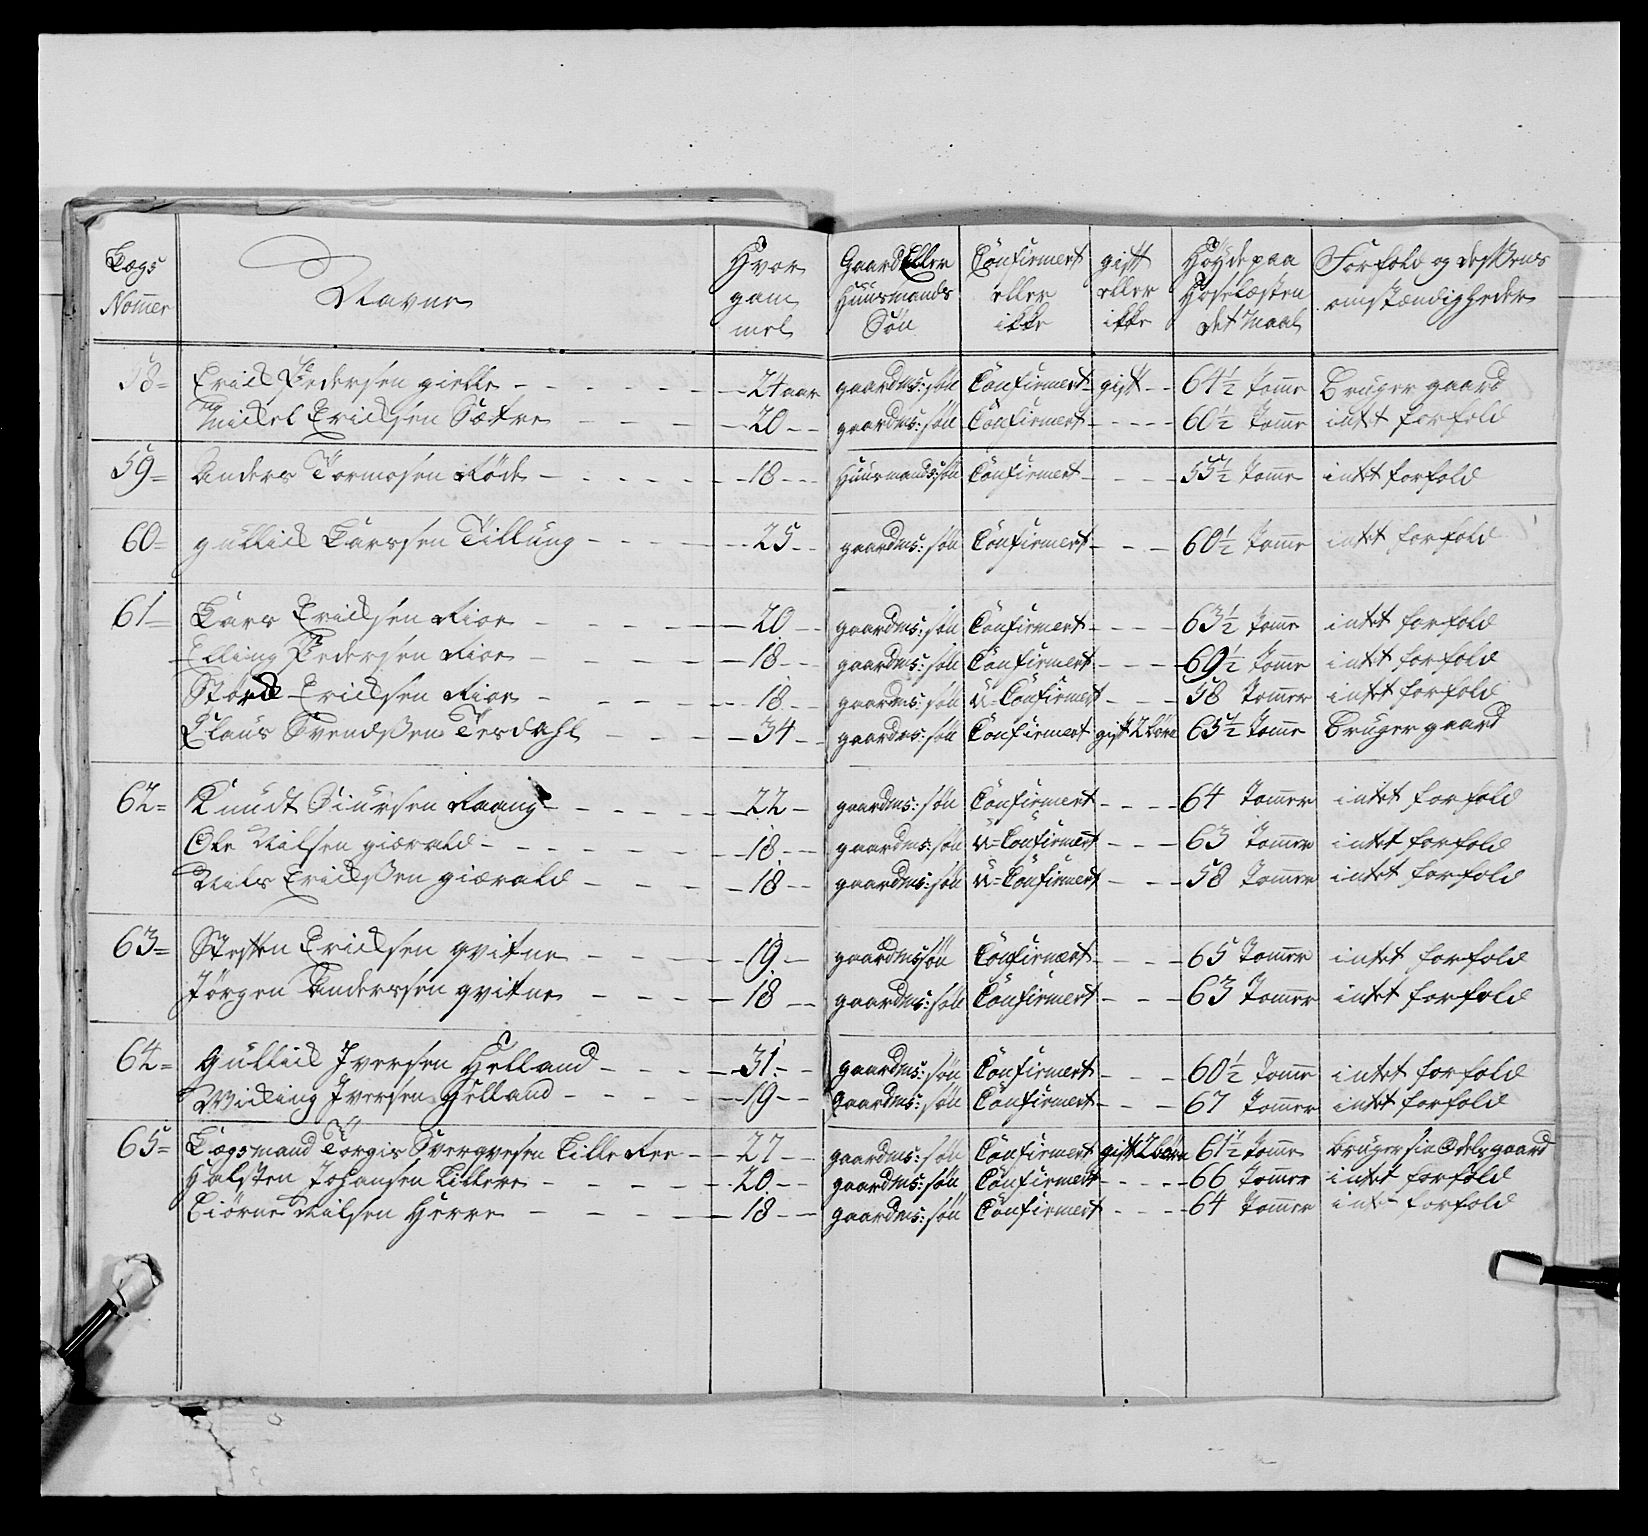 Lægs Nomer | Navne | Hvor gam mel | Gaard Eller Huusmands Søn | Confirmert eller ikke | gift eller ikke | Høyde paa Hoselæsten det Maal | Forfold og desszens omstændigheder
58= Erick Pedersen gielle - - - 24 aar gaardms: søn Confirmert gift - 64½ Tomme Bruger gaard
Mickel Ericksen Sætre - - - 20 - gaardms: søn Confirmert - - - 60½ Tomme intet forfold
59= Anders Tormosen Røde - - - 18 - - Huusmands søn Confirmert - - - 55½ Tomme intet forfold
60= gullick Larssen Tillung - - - 25 - gaardms: søn Confirmert - - - 60½ Tomme intet forfold
61= Lars Ericksen Rior - - - 20 - gaardms: søn Confirmert - - - 63½ Tomme intet forfold
Elling Pedersen Rior - - - 18 - gaardms: søn Confirmert - - - 69½ Tomme intet forfold
Ericksen Rior - - - 18 - gaardms: søn U=Confirmert - - - 58 Tommer intet forfold
Claus Svendszen Tesdahl - - - 34 - gaardms: søn Confirmert gift 2 børn 65½ Tomme Bruger gaard
62= Knudt Siursen Raang - - - 22 - gaardms: søn Confirmert - - - 64 Tommer intet forfold
Ole Nilsen giærald - - - 18 - gaardms: søn U=Confirmert - - - 63 Tommer intet forfold
Niels Erickszen giærald - - - 18 - gaardms: søn U=Confirmert - - - 58 Tommer intet forfold
63= Steffen Ericksen qvitne - - - 19 - gaardms søn Confirmert - - - 65 Tommer intet forfold
Jörgen Anderssen qvitne - - - 18 - gaardms: søn Confirmert - - - 63 Tommer intet forfold
64= Gullick Iversen Helland - - - 31 - gaardms: søn Confirmert - - - 60½ Tomme intet forfold
Wicking Iversen Helland - - - 19 - gaardms: søn Confirmert - - - 67 Tommer intet forfold
65= Lægsmand Torgis Lille Ree - - 27 - gaardms: søn Confirmert gift 2 børn 61½ Tomme bruger sin Odels gaard
Halsten Johansen Lillere - - - 20 - gaardms: søn Confirmert - - - 66 Tommer intet forfold
Biörne Nilsen Herre - - - 18 - gaardms: søn Confirmert - - - 64 Tommer intet forfold